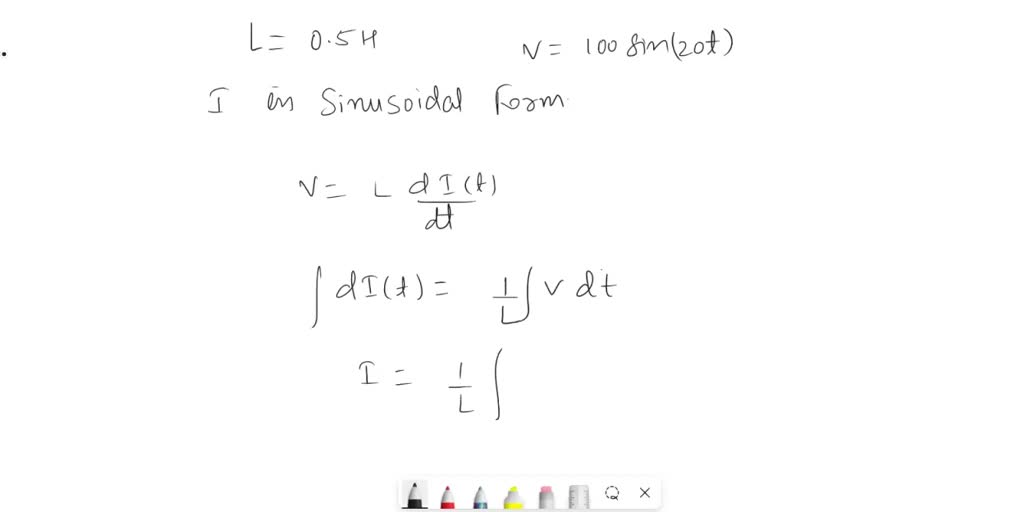 L = 0.5H
V = 100 Sin(20t)
I in Sinusoidal Form
V = L dI(t)/dt
∫ dI(t) = 1/L ∫ V dt
I = 1/L ∫